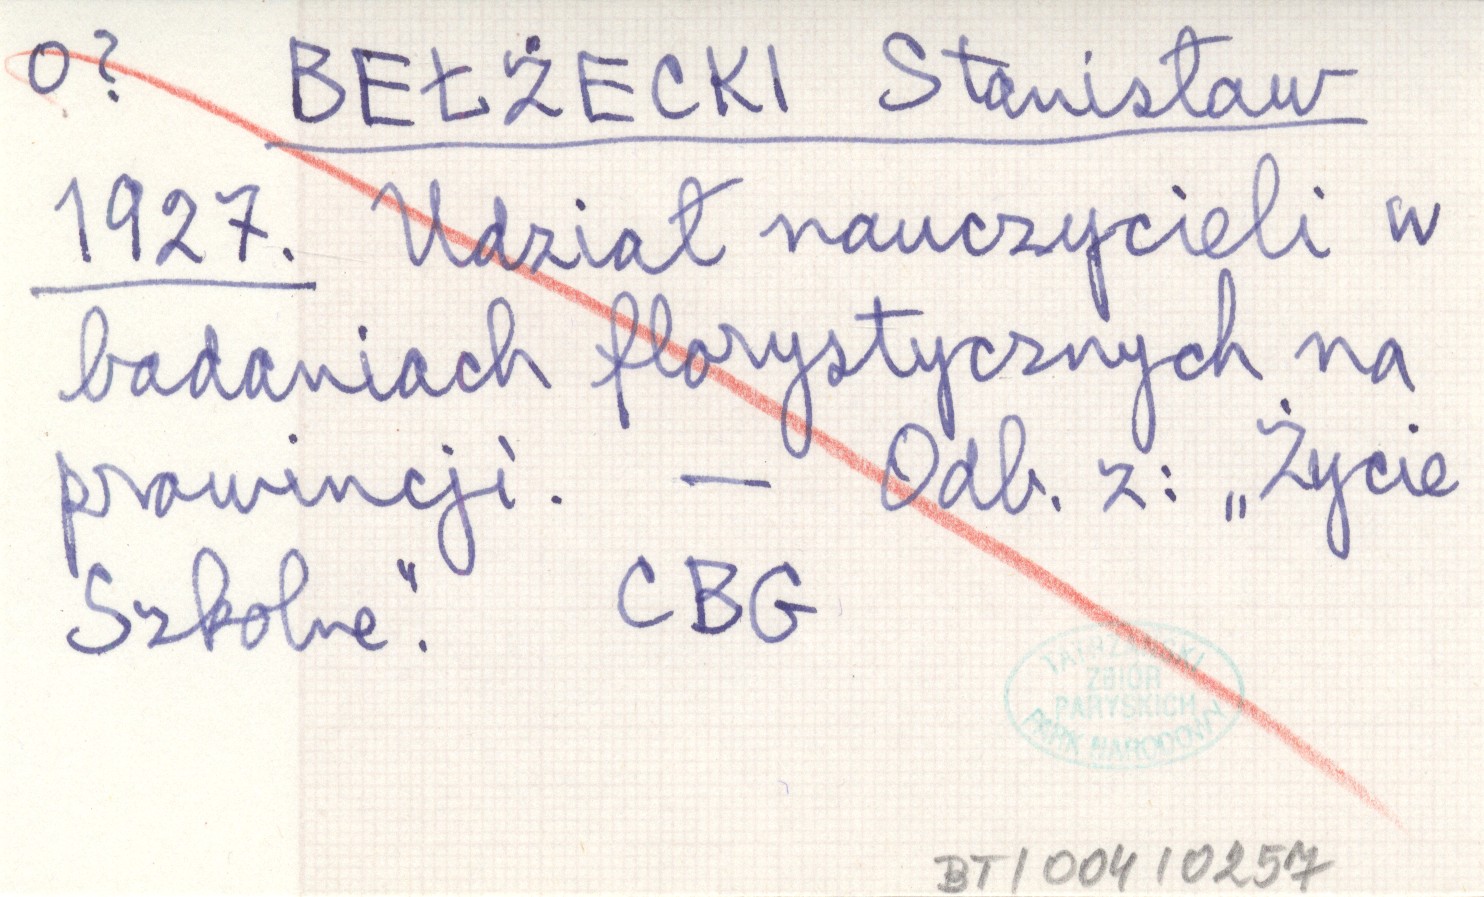 o? BEŁŻECKI Stanisław
1927. Udział nauczycieli w
badaniach florystycznych na
prowincji. — Odb. z: „Życie
Szkolne". CBG
TATRZAŃSKI
ZBIÓR
PARYSKICH
PARK NARODOWY
BT/004/0257